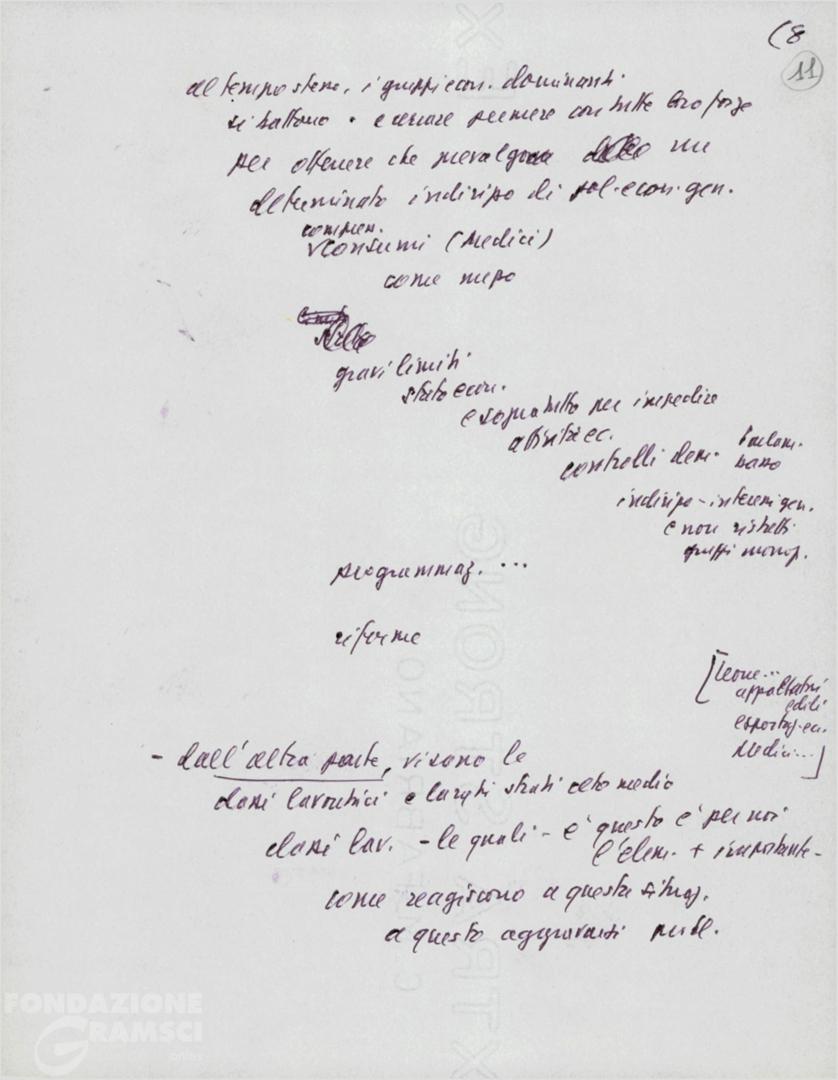 (8
11
al tempo stesso, i gruppi econ. dominanti
si battono e cercare premere con tutte loro forze
per ottenere che prevalgono un
determinato indirizzo di pol. econ. gen.
compr.
consumi (Medici)
come mezzo
gravi limiti
stato econ.
e soprattutto per impedire
attività ec.
controlli dem. Parlam.
indirizzo - interessi gen.
e non ristretti
gruppi monop.
programmaz. ...
riforme
[Leone...
appaltatori
edili
esportaz.
Medici...]
- dall'altra parte, vi sono le
classi lavoratrici e larghi strati ceto medio
classi lav. - le quali - e questo è per noi
l'elem. + importante -
come reagiscono a questa situaz.
a questo aggravarsi probl.
FONDAZIONE
GRAMSCI
onlus
C.M.FABRIANO
EXTRA STRONG